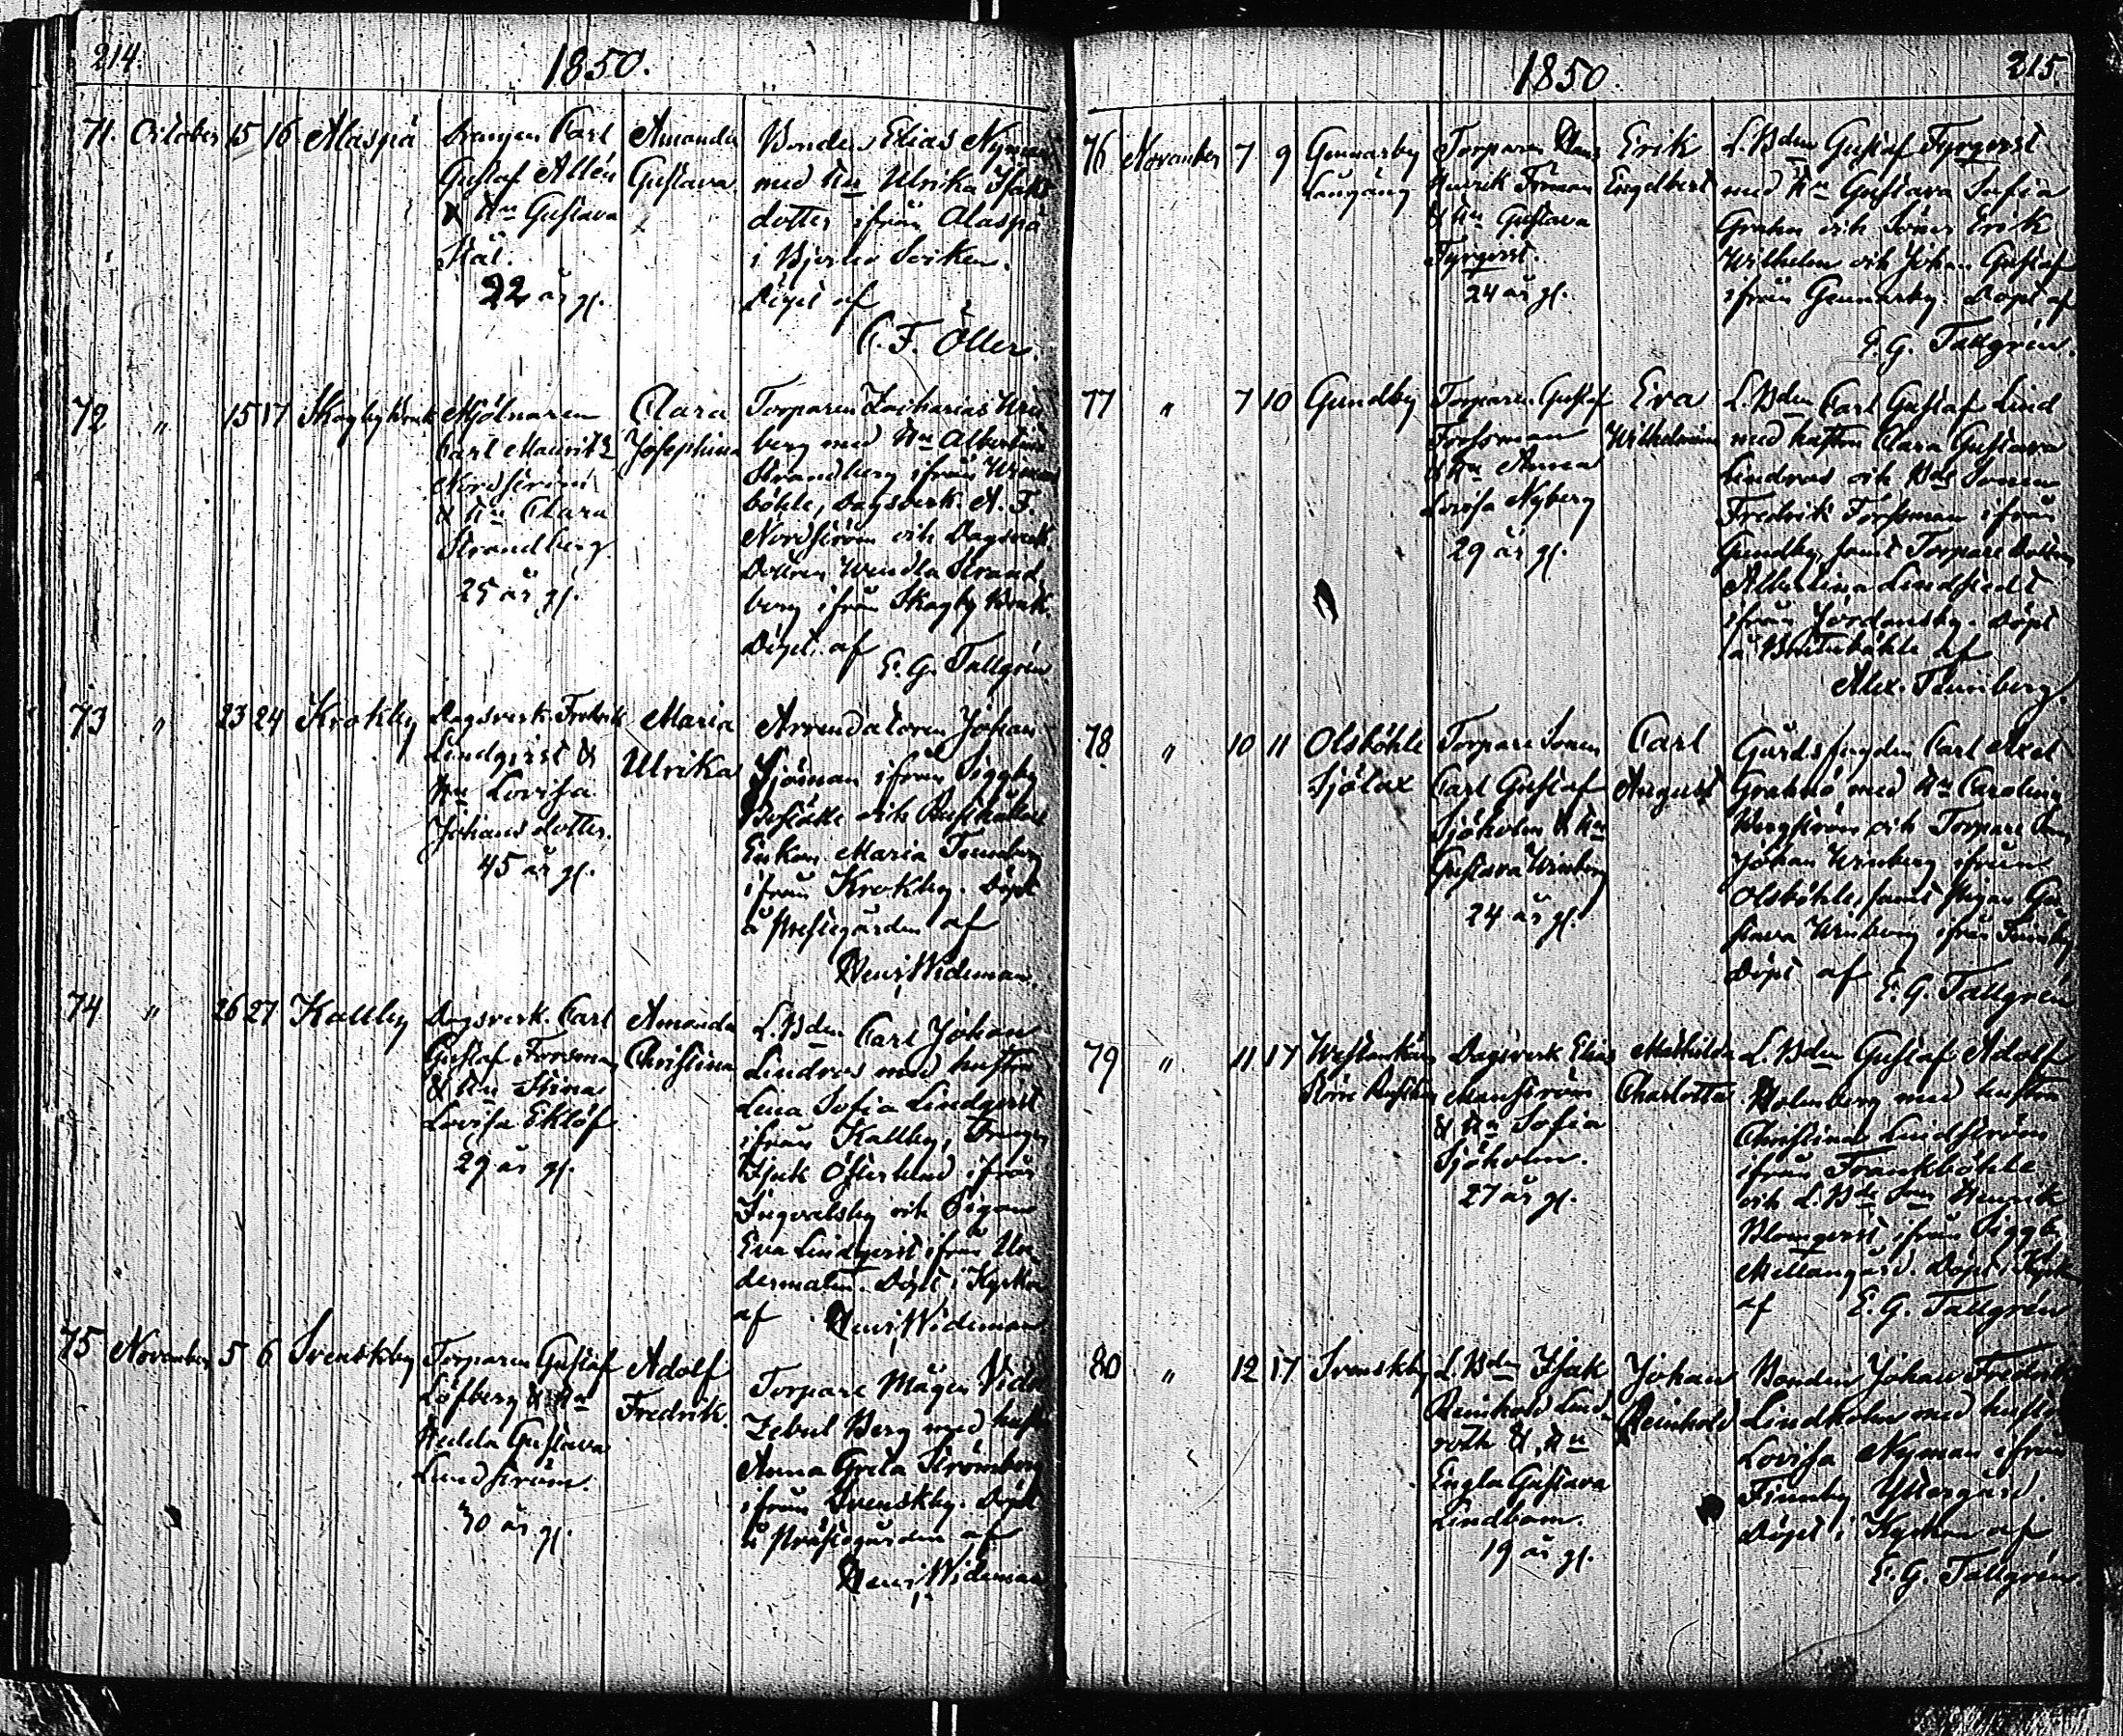 214.
1850.
71. October 15 16 Alaspä
Drängen Carl
Gustaf Allén
& Hu Gustava
Stål.
22 år gl.
Amanda
Gustava
Bonden Elias Nyman
med Hu Ulrika Isaks
dotter ifrån Alaspä
i Bjerno Socken.
Döpt af
C. F. Öller.
72 " 15 17 Skogby Bruk
Mjölnaren
Carl Mauritz
Nordström
& Hu Clara
Strandberg
25 år gl.
Clara
Josephina
Torparen Zacharias
berg med Hu Albertina
Strandberg ifrån
böhle, Dagsverk. A. F.
Nordström och Dagsverk.
Dottren Wendla Strand
berg ifrån Skogby Bruk.
Döpt af
E. G. Tallgrén
73 " 23 24 Krokby
Dagsverk. Fredrik
Lindqvist &
Hu Lovisa
Johansdotter.
45 år gl.
Maria
Ulrika
Arrendatoren Johan
Sjöman ifrån Siggby
Boställe och Rusthållare
Enkan Maria
ifrån Krokby. Döpt
å Prestegården af
Henr. Wideman.
74 " 26 27 Kallby
Dagsverk. Carl
Gustaf Forsman
& Hu Stina
Lovisa Eklöf
29 år gl.
Amanda
Christina
L. Bden Carl Johan
Lindros med hustru
Lena Sofia Lindqvist
ifrån Kallby, Dreng
Österlund ifrån
Ingvalsby och Pigan
Eva Lindqvist ifrån Un
dermalm. Döpt i Kyrkan
af Henr. Wideman
75 November 5 6 Svenskby
Torparen Gustaf
Löfberg & Hu
Hedda Gustava
Lindström.
30 år gl.
Adolf
Fredrik.
Torpare Mågen Vida
Zebul Berg med hustru
Anna Greta Strömberg
ifrån Svenskby. Döpt
å Prästegården af
Henr. Wideman
1850.
215.
76 November 7 9 Gennarby
Torparen Hans
Henrik Forman
& Hu Gustava
Fyrqvist.
24 år gl.
Erik
Engelbert
L. Bden Gustaf Fyrqvist
med Hu Gustava Sofia
Grahn och Söner Erik
Wilhelm och Johan Gustaf
ifrån Gennarby. Döpt af
E. G. Tallgrén.
77 " 7 10 Gundby
Torparen Gustaf
Forssman
& Hu Anna
Lovisa Nyberg
29 år gl.
Eva
Wilhelmina
L. Bden Carl Gustaf Lind
med hustru Clara Gustava
Lindros och Bde Sonen
Fredrik Forssman ifrån
Gundby, samt Torpare Dottren
Albertina Lindstedt
ifrån Jordansby. Döpt
å af
Alex. Tennberg
78 " 10 11 Olsböhle
Sjölax
Torpare Sonen
Carl Gustaf
Sjöholm & Hu
Gustava Winberg
24 år gl.
Carl
August
Gårdsfogden Carl Axel
Grahnö med Hu Carolina
Bergström och Torpare Son
Johan Winberg ifrån
Olsböhle, samt Pigan Gu
stava Winberg ifrån Finnby
Döpt af E. G. Tallgrén
79 " 11 17
Dagsverk Elias
Manström
& Hu Sofia
Sjöholm.
27 år gl.
Mathilda
Charlotta
L. Bden Gustaf Adolf
Holmberg med hustru
Christina Lindström
ifrån Trankböhle
och L. Bde Son Henrik
Blomqvist ifrån Siggby
Mellangård. Döpt i Kyrk
af E. G. Tallgrén
80 " 12 17 Svenskby
L. Bden Isak
Reinhold Lind
roth & Hu
Engla Gustava
Lindbom.
19 år gl.
Johan
Reinhold
Bonden Johan Fredrik
Lindholm med hustru
Lovisa Nyman ifrån
Finnby Yttergård.
Döpt i Kyrkan af
E. G. Tallgrén.